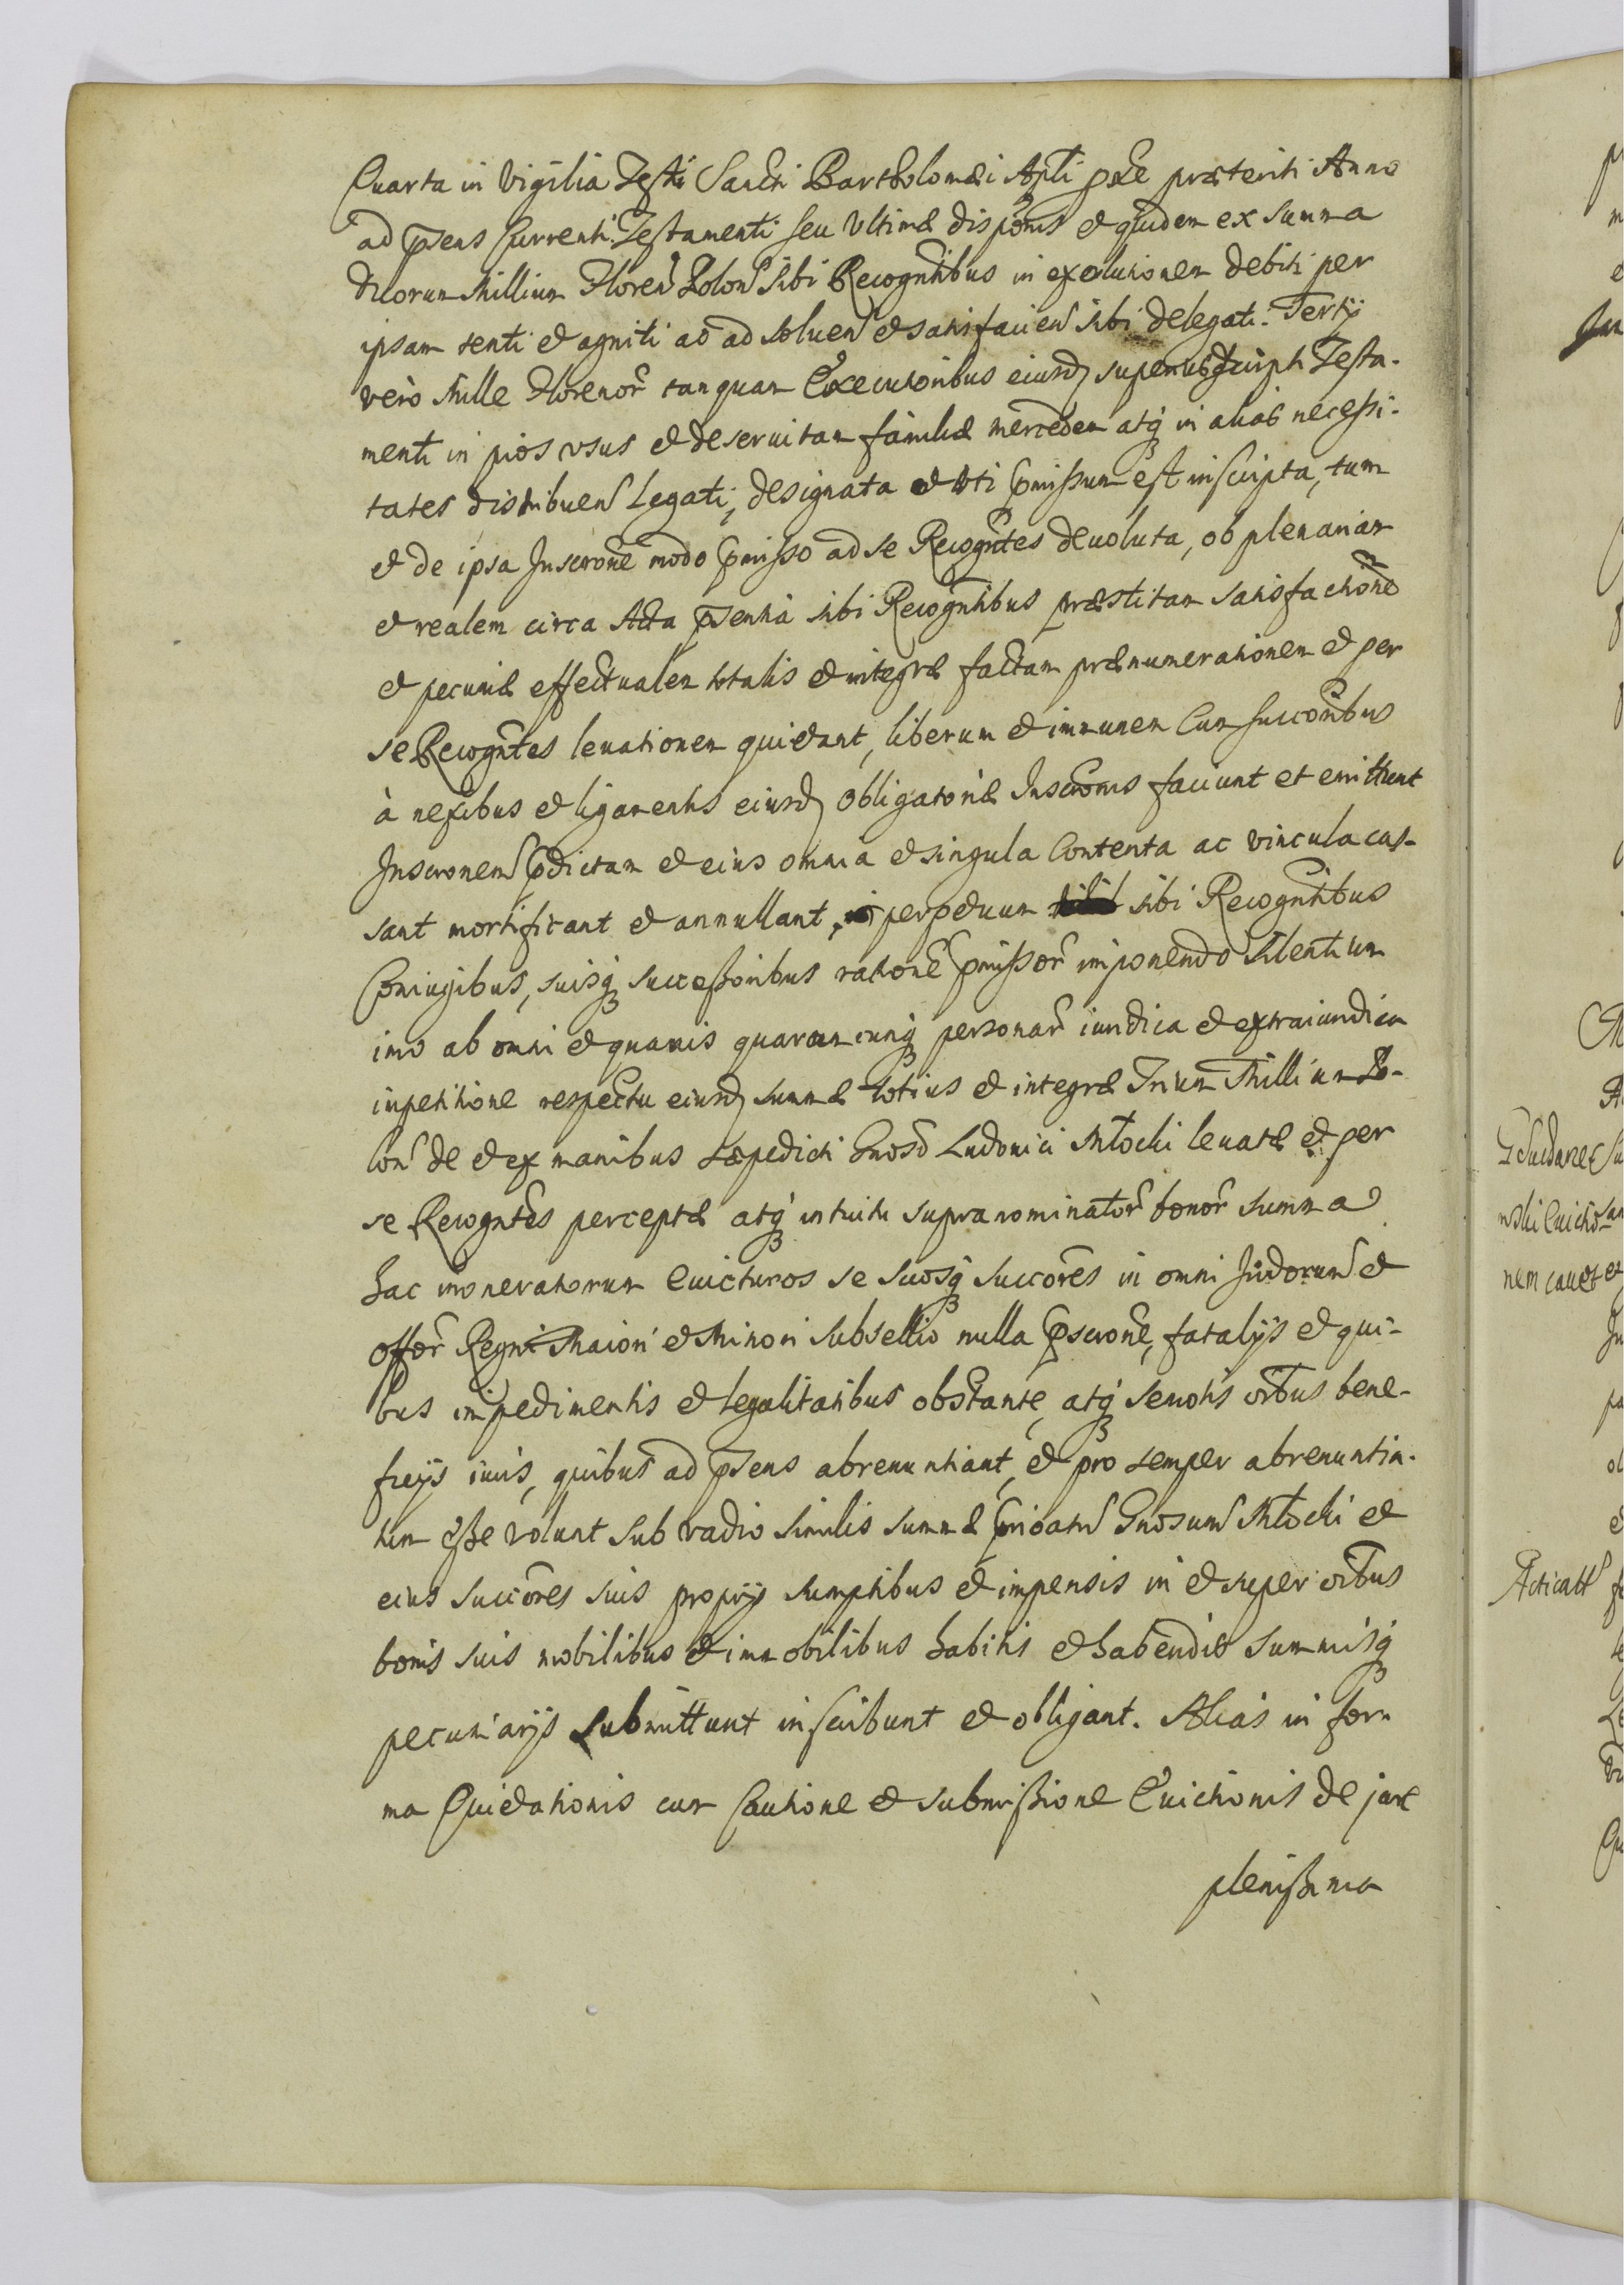 Quarta in Vigilia Festi Sancti Bartholomæi Apli pxe præteriti Anno
ad psens Currenti. Testamenti seu Ultimæ disponis et quidem ex summa
duorum Millium Floren Polon sibi Recogntibus in exolutionem debiti per
ipsam tenti et agniti ac ad soluen et satisfacien sibi delegati. Tertij
vero Mille Florenor tanquam Executoribus eiusd superius scripti Testa-
menti in pios usus et deseruitam familiæ mercedem atq in alias necessi-
tates distribuen Legati, designata et uti pmissum est inscripta, tum
et de ipsa Inscrone modo pmisso ad se Recogntes deuoluta, ob plenariam
et realem circa Acta psentia sibi Recogntibus præstitam satisfactione
et pecuniæ effectualem totalis et integræ factam prænumerationem et per
se Recogntes leuationem quietant, liberum et immunem Cum succoribus
à nexibus et ligamentis eiusd obligatoriæ Inscronis faciunt et emittunt
Inscronem pdictam et eius omnia et singula Contenta ac vincula cas-
sant mortificant et annullant, perpetuum sibi Recogntibus
Coniugibus, suisq successoribus ratione pmissor imponendo silentium
imo ab omni et quauis quarumcunq personar iuridica et extraiuridica
impetitione respectu eiusd summæ totius et integræ Trium Millium Po-
lon de et ex manibus sæpedicti Gnosd Ludouici Młocki leuatæ et per
se Recogntes perceptæ atq intuitu supranominator bonor summa
hac inoneratorum Euicturos se suosq succores in omni Judiorum et
offor Regni Maiori et Minori subsellio nulla pscrone, fatalijs et qui-
bus impedimentis et legalitatibus obstante, atq semotis oibus bene-
ficijs iuris, quibus ad psens abrenuntiant, et pro semper abrenuntia-
tum esse volunt sub vadio similis summæ Gnosum Młocki et
eius succores suis proprijs sumptibus et impensis in et super oibus
bonis suis mobilibus et immobilibus habitis et habendis summisq
pecuniarijs submittunt inscribunt et obligant. Alias in for-
ma Quietationis cum Cautione et submissione Euictionis de jure
plenissima
nem cauet et
Acticatt